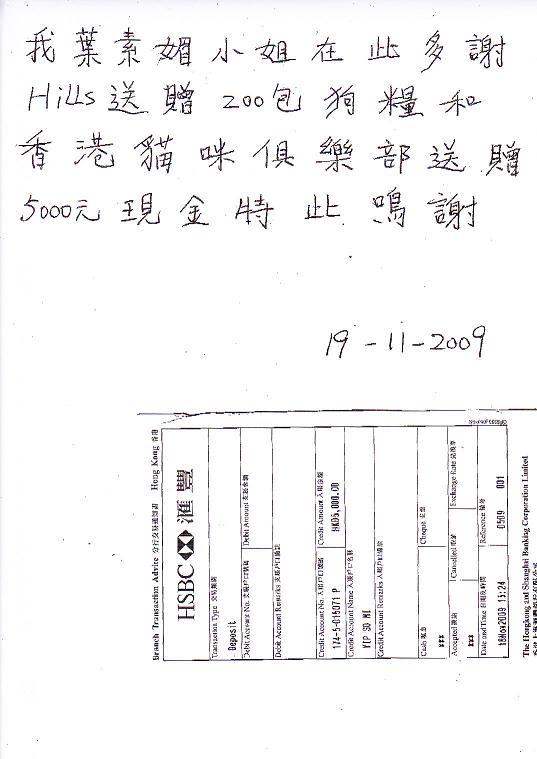 我葉素媚小姐在此多謝
Hills送贈200包狗糧和
香港貓咪俱樂部送贈
5000元現金特此鳴謝
19-11-2009
Branch Transaction Advice 分行交易通知書 Hong Kong 香港
HSBC 滙豐
Transaction Type 交易類別
Deposit
Debit Account No. 支賬戶口號碼 Debit Amount 支賬金額
Debit Account Remarks 支賬戶口備註
Credit Account No. 入賬戶口號碼 Credit Amount 入賬金額
174-5-015071 P HKD5,000.00
Credit Account Name 入賬戶口名稱
YIP SO MI
Credit Account Remarks 入賬戶口備註
Cash 現金 Cheque 支票
***
Accepted 接納 Cancelled 取消 Exchange Rate 兌換率
***
Date and Time 日期及時間 Reference 備考
18Nov2009 15:24 0509 001
The Hongkong and Shanghai Banking Corporation Limited